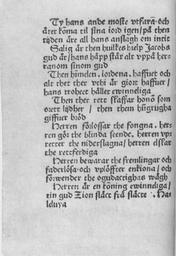 Ty hans ande moste vtfara och
åter koma til sina iord igen/ på then
tijden äre all hans anslagh om intit
Salig är then huilkes hielp Jacobs
gud är/ hans håpp står alt vppå her-
ranom sinom gud
Then himelen, iordena, haffuet och
alt thet ther vthi är giort haffuer/
hans trohet håller ewinneliga
Then ther rett skaffar honom som
orett lijdher / then them hungrogha
giffuer brödh
Herren förlossar the fongna, herr-
ren gör the blinda seende, herren vp-
retter the niderslagna/ herren elskar
the rettferdiga
Herren bewarar the fremlingar och
faderlösa och vplöffter enkiona/ och
förwender the ogudactighas wägh
Herren är en konung ewinneliga/
tin gud Zion slächt frå slächte. Ha-
leluya